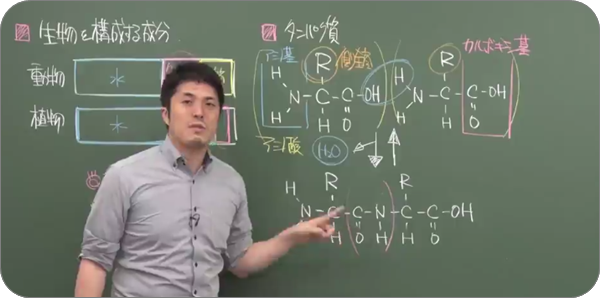 生物を構成する成分
動物 水
植物 水
タンパク質
アミノ基
R 側鎖
カルボキシ基
R
H
N - C - C - OH
H H O
H
N - C - C - OH
H H O
アミノ酸
H₂O
H R R
N - C - C - N - C - C - OH
H O H H O